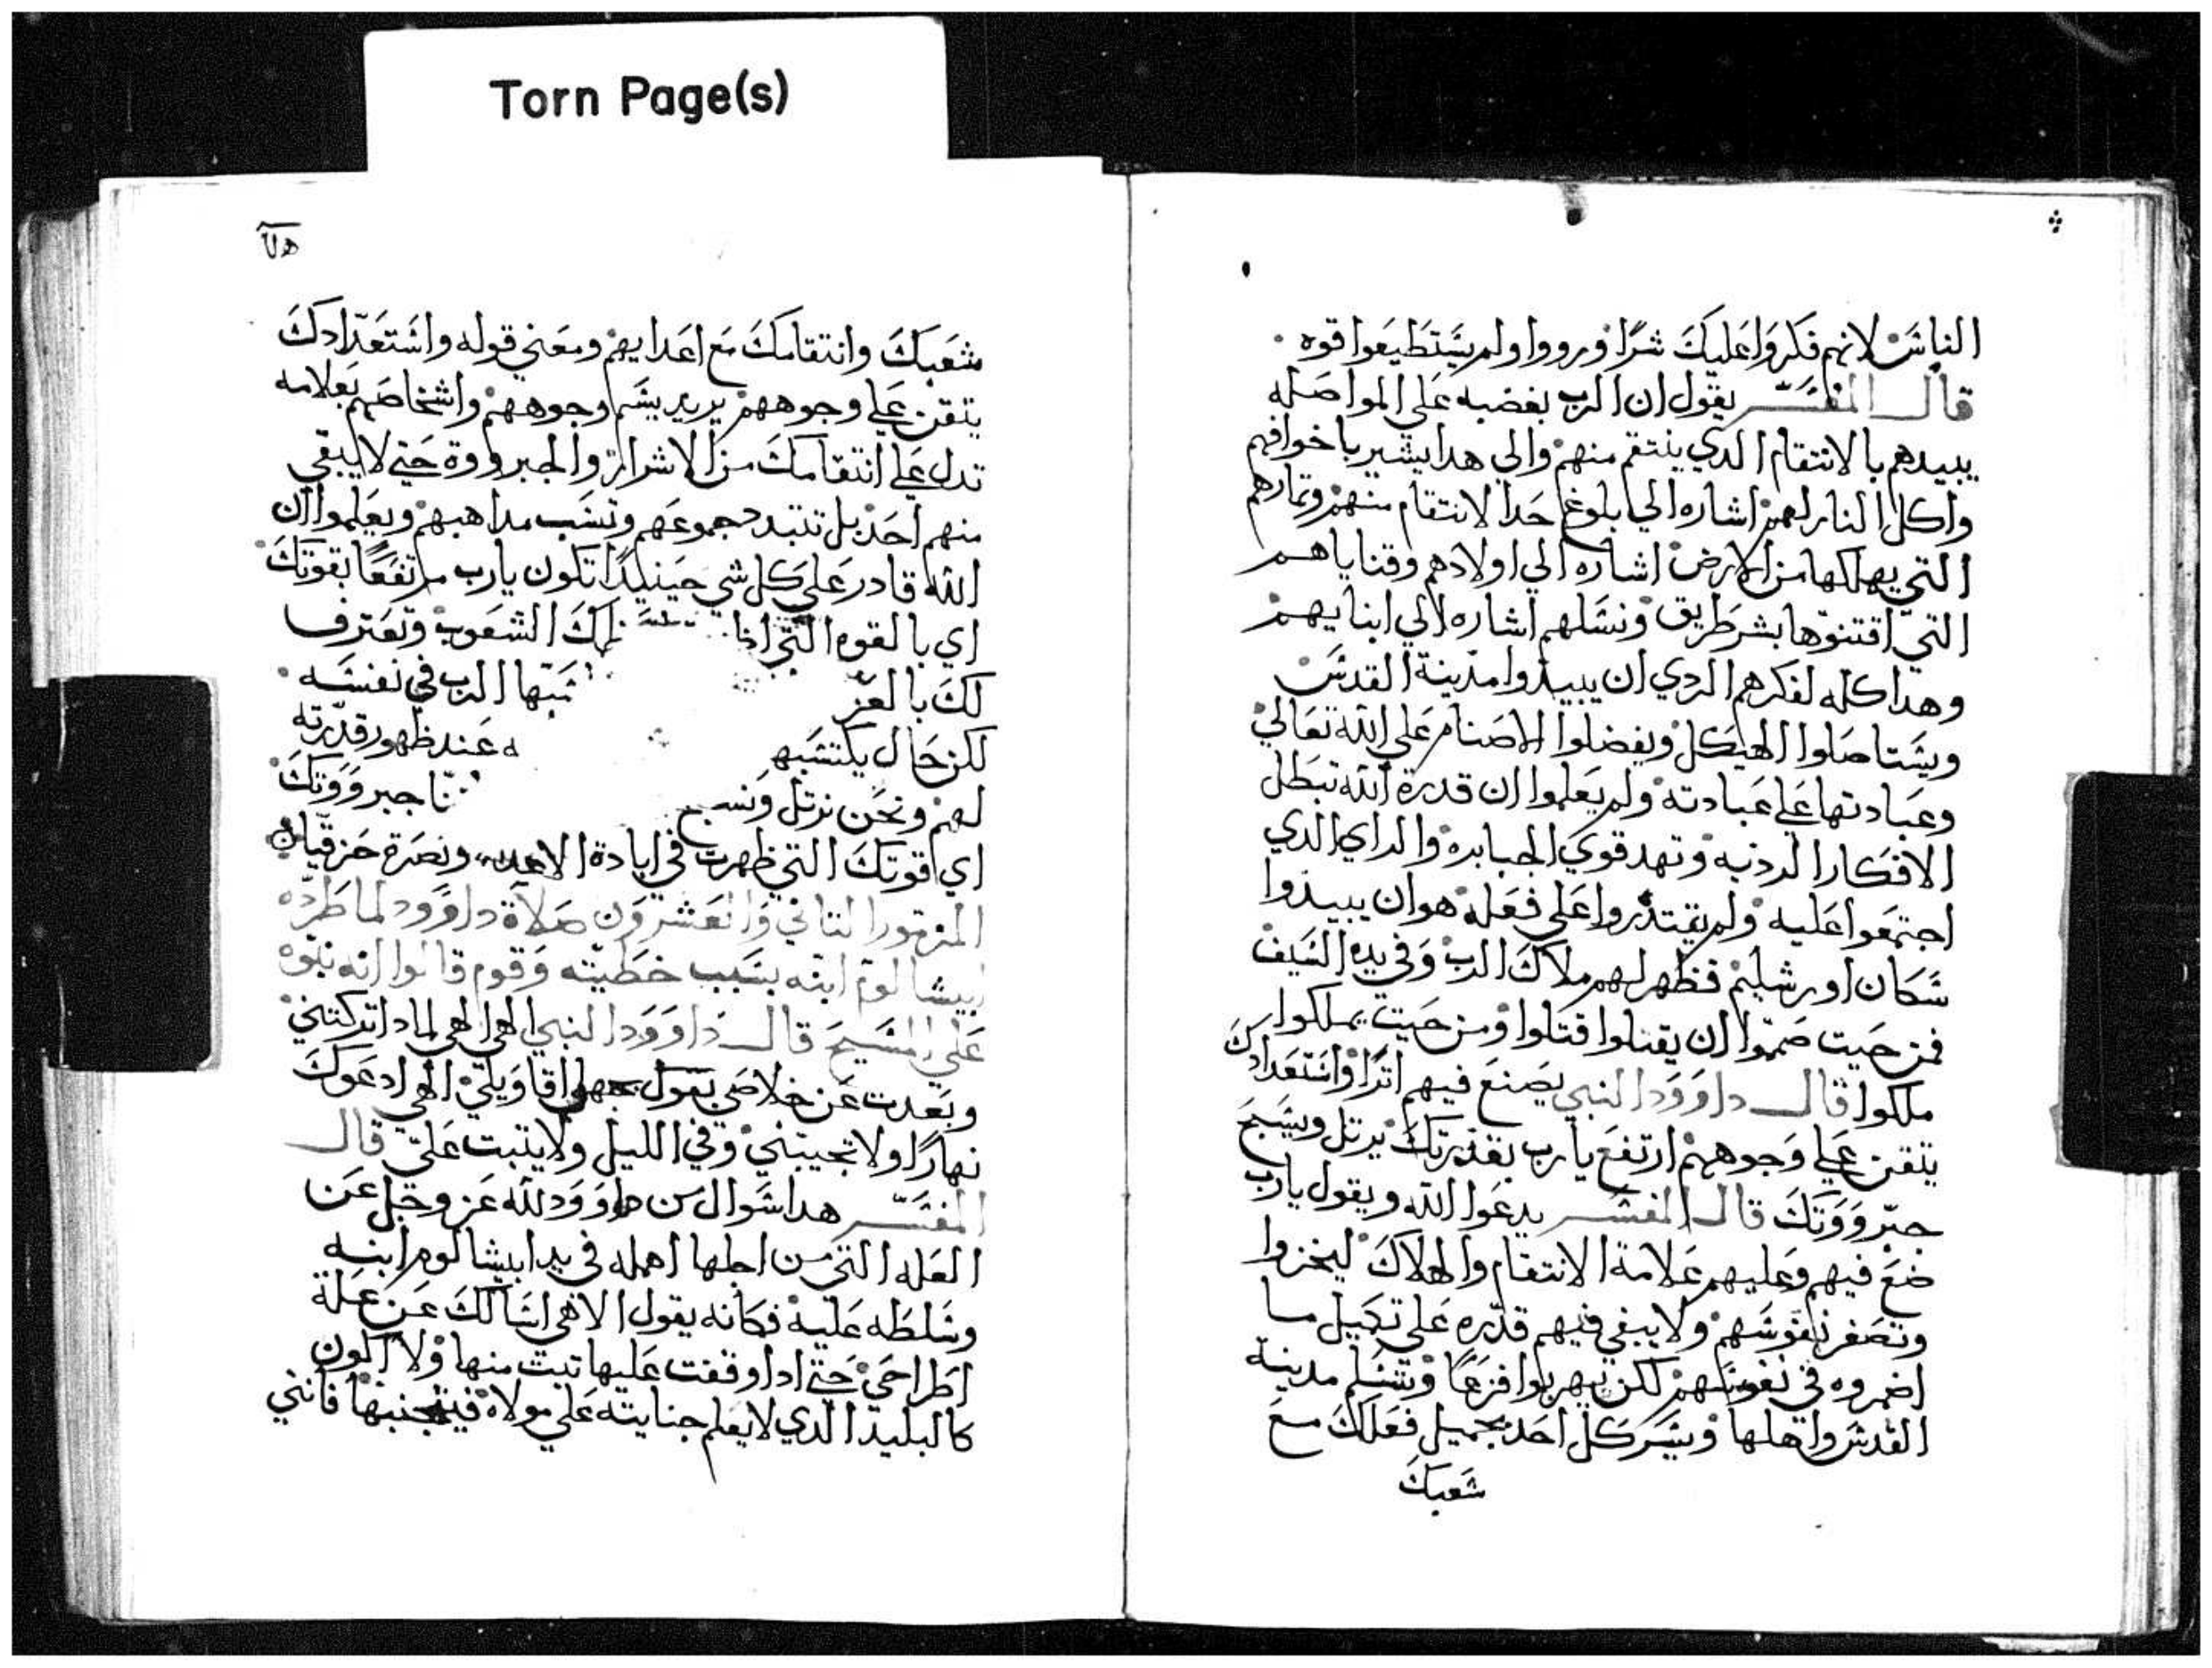 Torn Page(s)
الناس لانهم فكروا عليك شرًا ورووا ولم يستطيعوا قوه
قال المفسر يقول ان الرب بغضبه علي المواصله
يبيدهم بالانتقام الدي ينتقم منهم والي هدا يشير باخوافهم
واكل النار لهم اشاره الي بلوغ حد الانتقام منهم وتمارهم
التي يهلكها من الارض اشاره الي اولادهم وقناياهم
التي اقتنوها بشر طريق ونسلهم اشاره الي ابنايهم
وهدا كله لفكرهم الردي ان يبيدوا مدينة القدس
ويستاصلوا الهيكل ويفضلوا الاصنام علي الله تعالي
وعبادتها علي عبادته ولم يعلموا ان قدرة الله تبطل
الافكار الرديه وتهد قوي الجبابره والراي الدي
اجتمعوا عليه ولم يقتدروا علي فعله هو ان يبيدوا
سكان اورشليم فظهر لهم ملاك الرب وفي يده السيف
فمن حيت صمموا ان يقتلوا قتلوا ومن حيت يملكوا
ملكوا قال داوود النبي يصنع فيهم اترًا واستعدادك
يتقن علي وجوههم ارتفع يا رب بقدرتك يرتل ويسبح
جبرووتك قال المفسر يدعوا الله ويقول يا رب
ضع فيهم وعليهم علامة الانتقام والهلاك ليخزوا
وتصغر نفوسهم ولا يبقي فيهم قدره علي تكميل ما
اضمروه في نفوسهم لكن يهربوا فزعًا وتسلم مدينة
القدس واهلها ويسر كل احد بجميل فعلك مع
شعبك
شعبك وانتقامك مع اعدايهم ومعني قوله واستعدادك
يتقن علي وجوههم يريد يسم وجوههم واشخاصهم بعلامه
تدل علي انتقامك من الاشرار والجبرووة حتي لا يبقي
منهم احد بل تتبدد جموعهم وتسب مداهبهم ويعلموا ان
الله قادر علي كل شي حينيدًا تكون يا رب مرتفعًا بقوتك
اي بالقوه التي الشعوب وتعترف
لك بالعز الرب في نفسه
لكن حال يكتسبه عند ظهور قدرته
لهم ونحن نرتل ونسبح جبرووتك
اي قوتك التي ظهرت في ابادة الاعدا ونصرة حزقيا
المزمور التاني والعشرون صلاة داوود لما طرده
ابيشالوم ابنه بسبب خطيته وقوم قالوا انه نبوه
علي المسيح قال داوود النبي الهي الهي لمادا تركتني
وبعدت عن خلاصي بقول جهلي اقاويلي الهي ادعوك
نهارًا ولا تجيبني وفي الليل ولا يتبت علي قال
المفسر هدا سوال من داوود لله عز وجل عن
العله التي من اجلها اهمله في يد ابيشالوم ابنه
وسلطه عليه فكانه يقول الاهي اسالك عن علة
اطراحي حتي ادا وقفت عليها تبت منها ولا اكون
كالبليد الدي لا يعلم جنايته علي مولاه فيتجنبها فانني